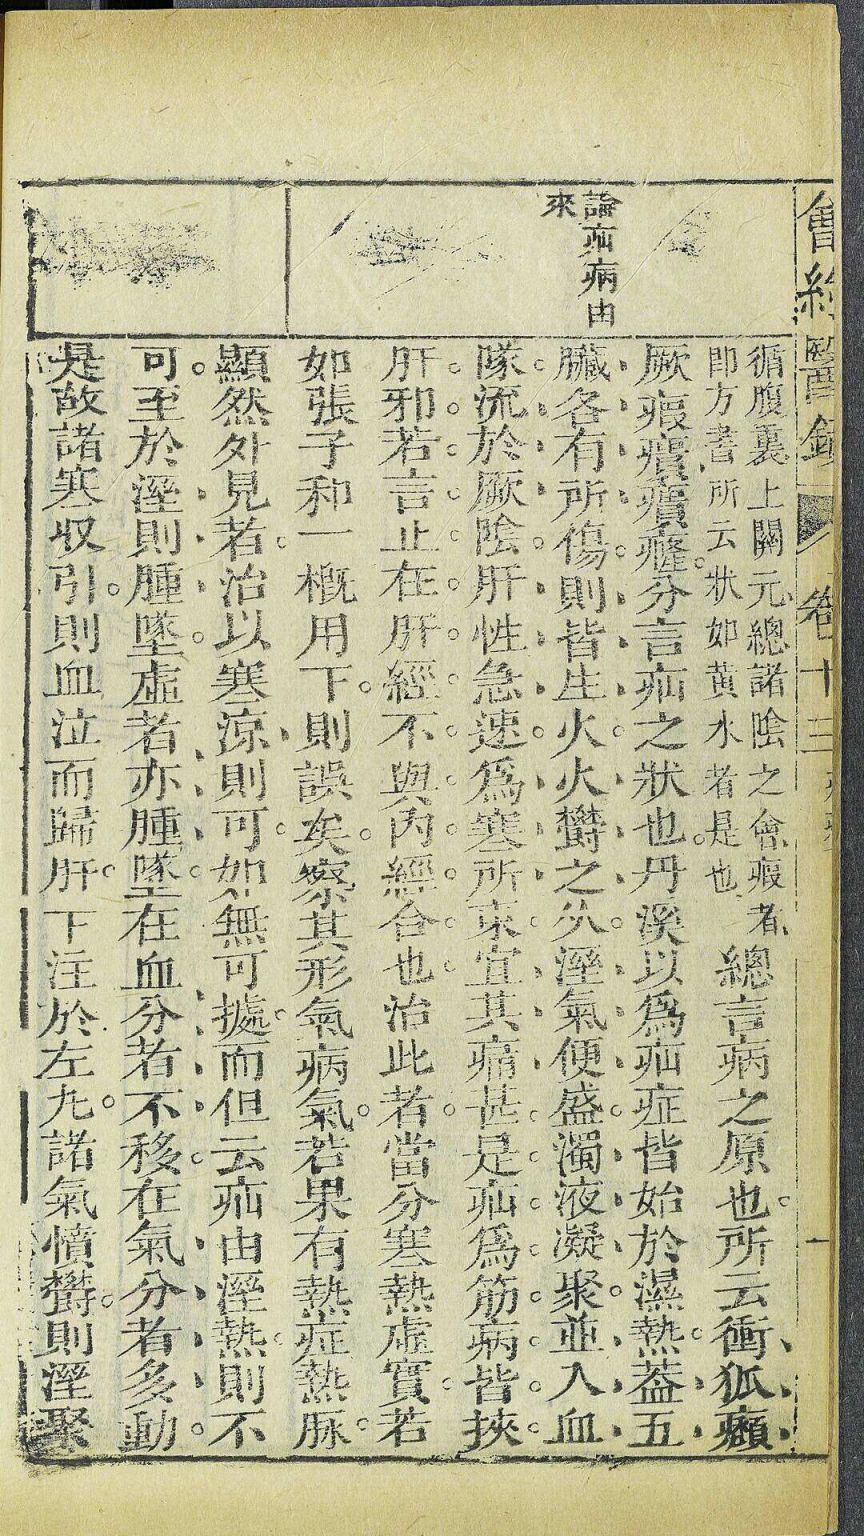 會經醫鏡
卷十三
一
論疝病由
來
循腹裏上關元總諸陰之會瘕者
卽方書所云狀如黃水者是也
總言病之原也。所云衝狐癩
厥瘕㿉癀癃。分言疝之狀也。丹溪以爲疝症皆始於濕熱。葢五
臟各有所傷。則皆生火。火鬱之乆。溼氣便盛。濁液凝聚。並入血
隊。流於厥陰。肝性急速。爲寒所束。宜其痛甚。是疝爲筋病。皆挾
肝邪。若言止在肝經。不與內經合也。治此者。當分寒熱虛實。若
如張子和一槪用下。則誤矣。察其形氣病氣。若果有熱症熱脉。
顯然外見者。治以寒涼則可。如無可㨿。而但云疝由溼熱。則不
可。至於溼則腫墜。虛者亦腫墜。在血分者不移。在氣分者多動。
是故諸寒収引。則血泣而歸肝。下注於左丸。諸氣憤鬱。則溼聚